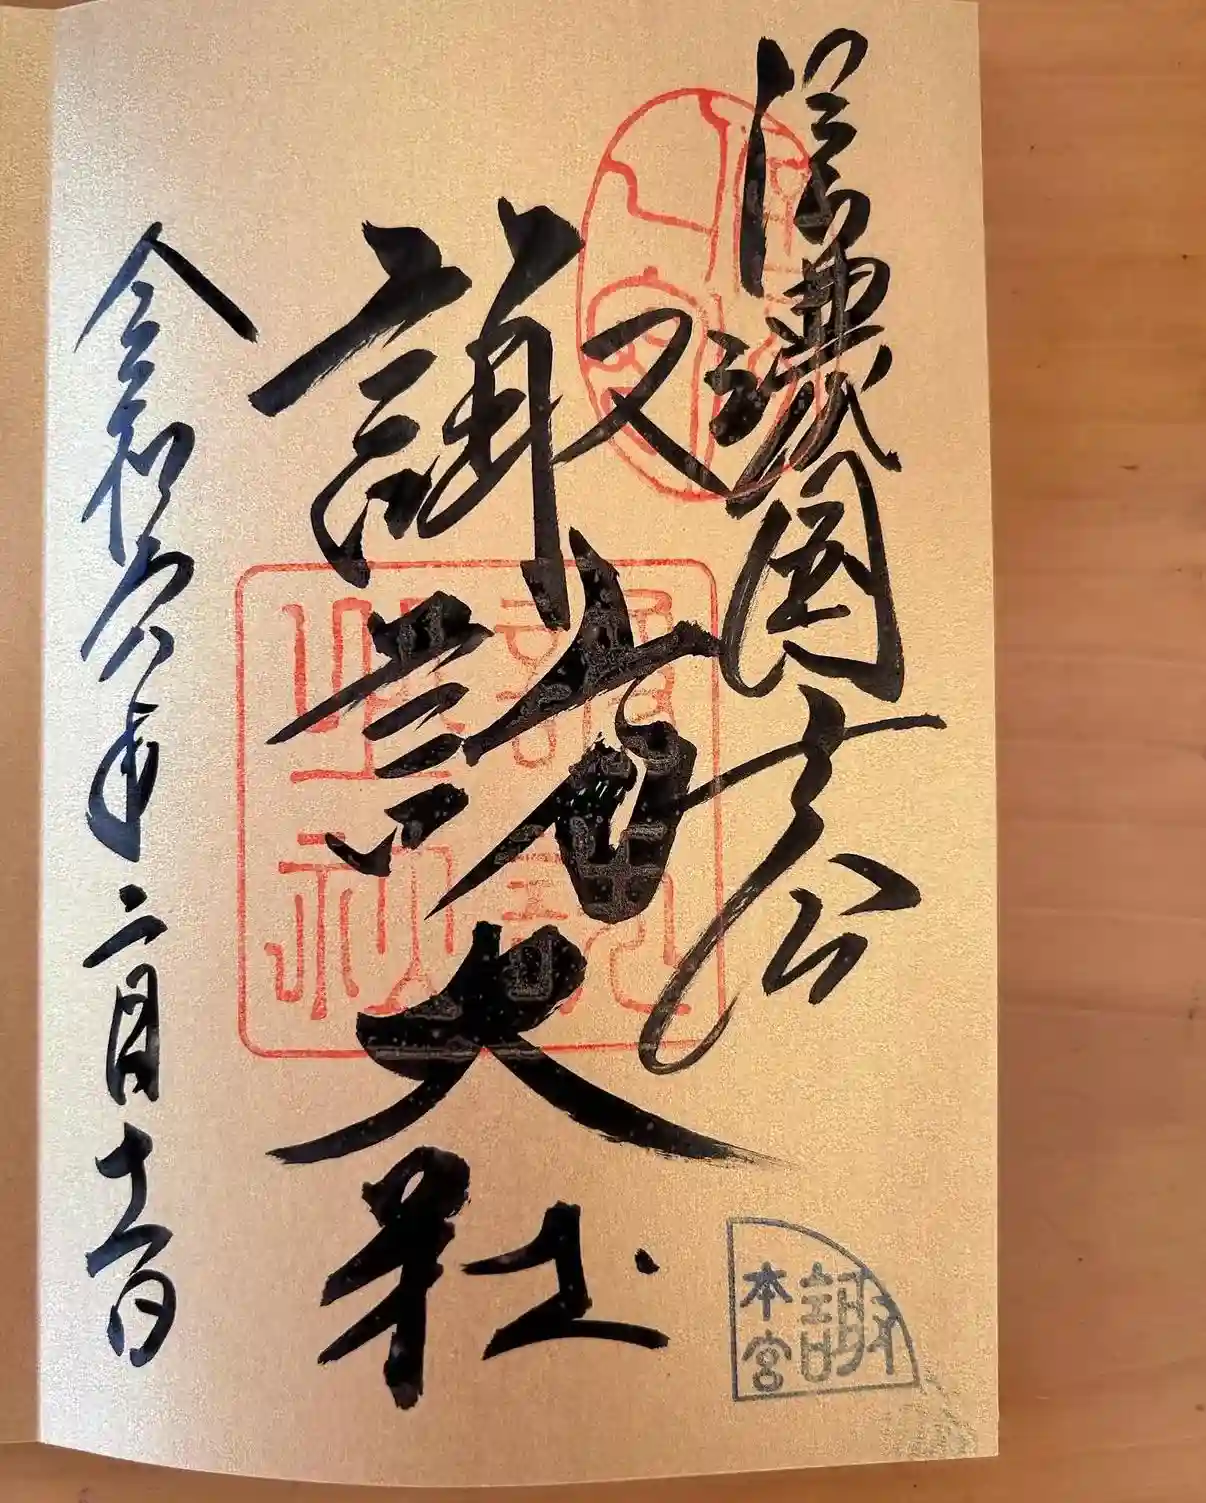 信濃國一之宮
諏訪大社
令和六年二月十二日
諏訪
本宮